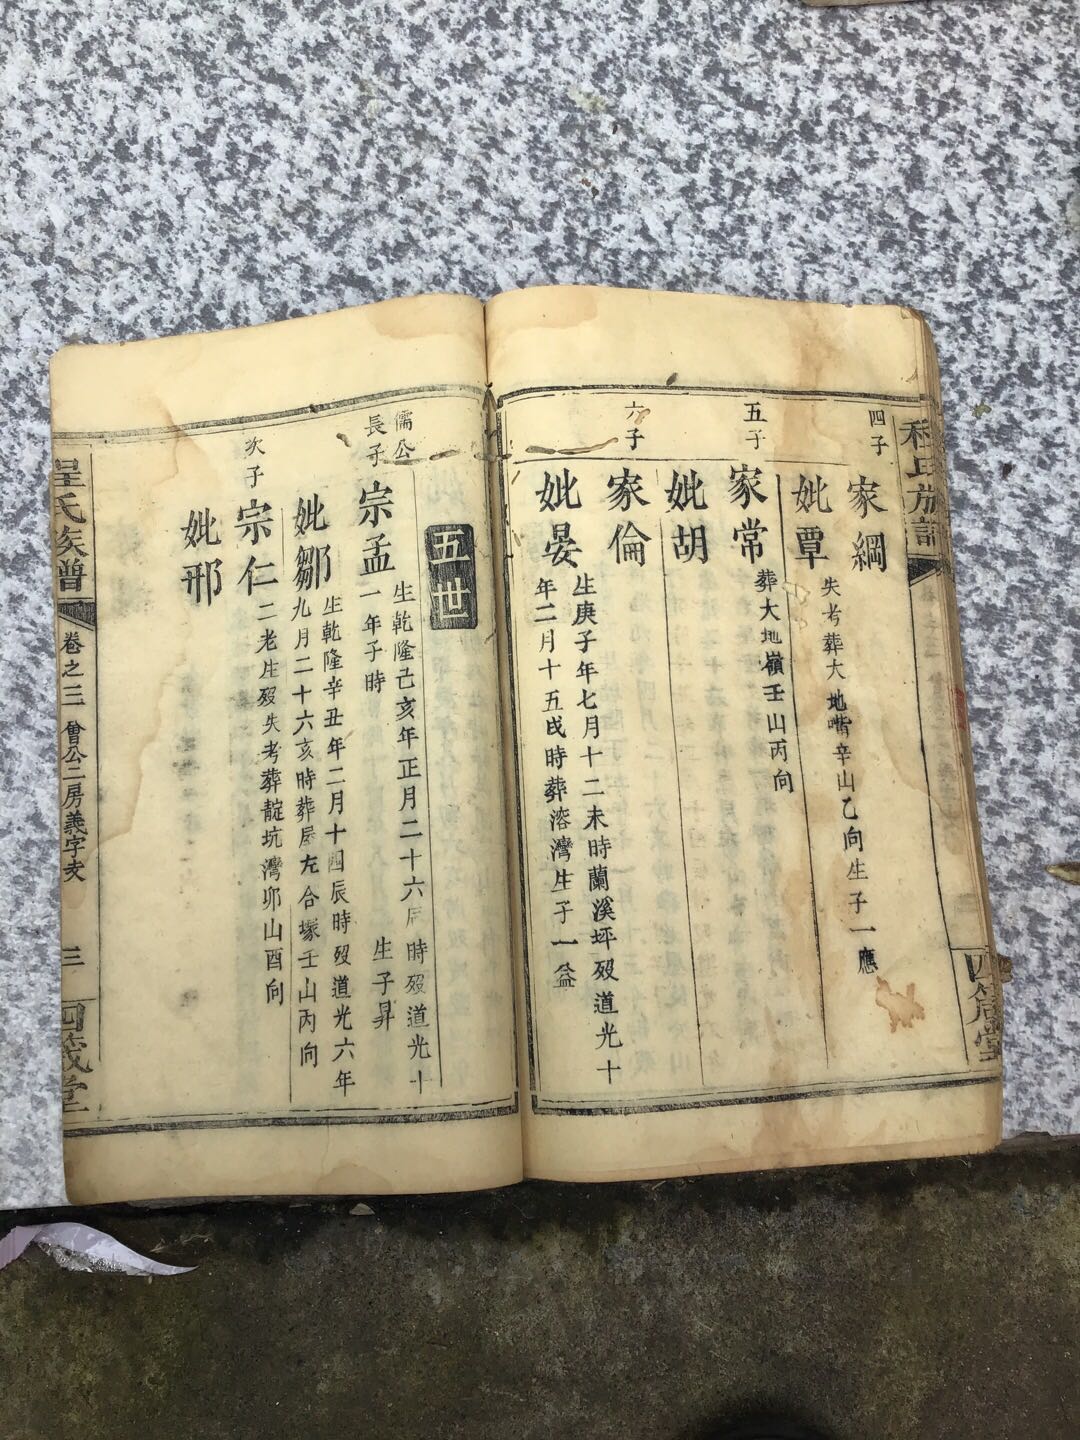 程氏族譜
四箴堂
四子
家綱
妣覃
失考葬大地嘴辛山乙向生子一應
五子
家常
妣胡
葬大地嶺壬山丙向
六子
家倫
妣晏
生庚子年七月十二未時蘭溪坪歿道光十
年二月十五戌時葬溶灣生子一益
五世
儒公
長子
宗孟
生乾隆己亥年正月二十六辰時歿道光十
一年子時 生子昇
妣鄒
生乾隆辛丑年二月十四辰時歿道光六年
九月二十六亥時葬屋左合塚壬山丙向
次子
宗仁
妣邢
二老生歿失考葬靛坑灣卯山酉向
程氏族譜
卷之三
曾公二房義字支
三
四箴堂